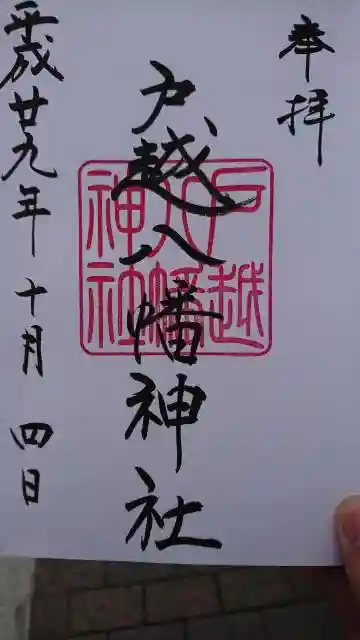 奉拝
戸越八幡神社
戸越
八幡
神社
平成廿九年十月四日